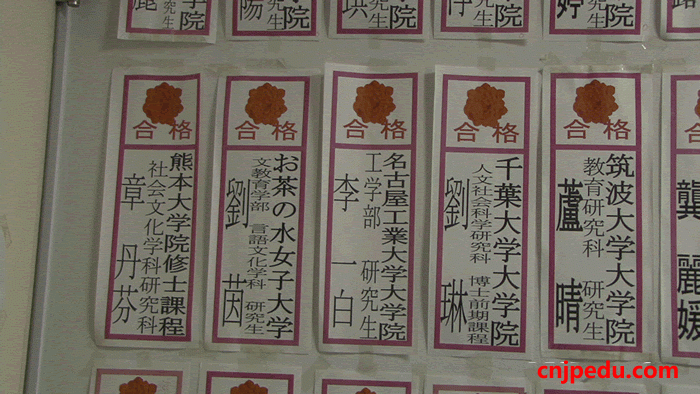 学院
究生
麗
学院
研究生
陽
学院
研究生
学院
研究生
学院
研究生
婷
合格
熊本大学院修士課程
社会文化学科研究科
章 丹 芬
合格
お茶の水女子大学
文教育学部 言語文化学科 研究生
劉 茵
合格
名古屋工業大学大学院
工学部 研究生
李 一 白
合格
千葉大学大学院
人文社会科学研究科 博士前期課程
劉 琳
合格
筑波大学大学院
教育研究科 研究生
蘆 晴
龔 麗媛
cnjpedu.com